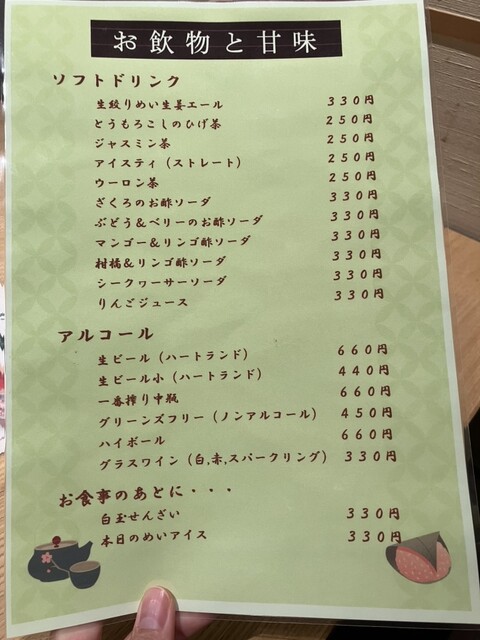 お飲物と甘味
ソフトドリンク
生絞りめい生姜エール 330円
とうもろこしのひげ茶 250円
ジャスミン茶 250円
アイスティ（ストレート） 250円
ウーロン茶 250円
ざくろのお酢ソーダ 330円
ぶどう＆ベリーのお酢ソーダ 330円
マンゴー＆リンゴ酢ソーダ 330円
柑橘＆リンゴ酢ソーダ 330円
シークヮーサーソーダ 330円
りんごジュース 330円
アルコール
生ビール（ハートランド） 660円
生ビール小（ハートランド） 440円
一番搾り中瓶 660円
グリーンズフリー（ノンアルコール） 450円
ハイボール 660円
グラスワイン（白,赤,スパークリング） 330円
お食事のあとに・・・
白玉ぜんざい 330円
本日のめいアイス 330円